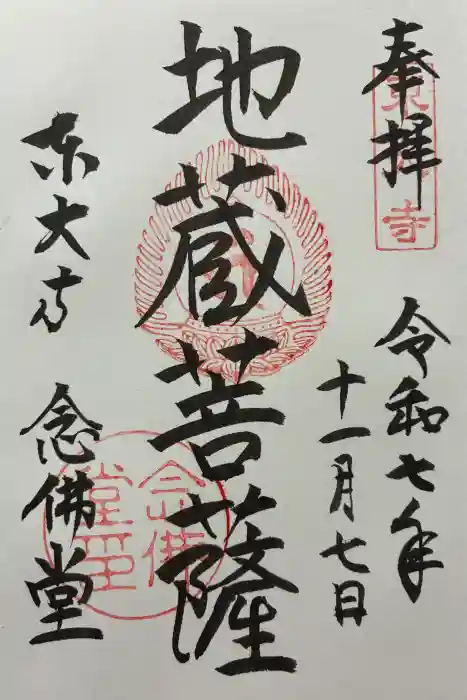 奉拝
令和七年
十一月七日
地蔵菩薩
東大寺
念佛堂
東大寺
念佛堂印